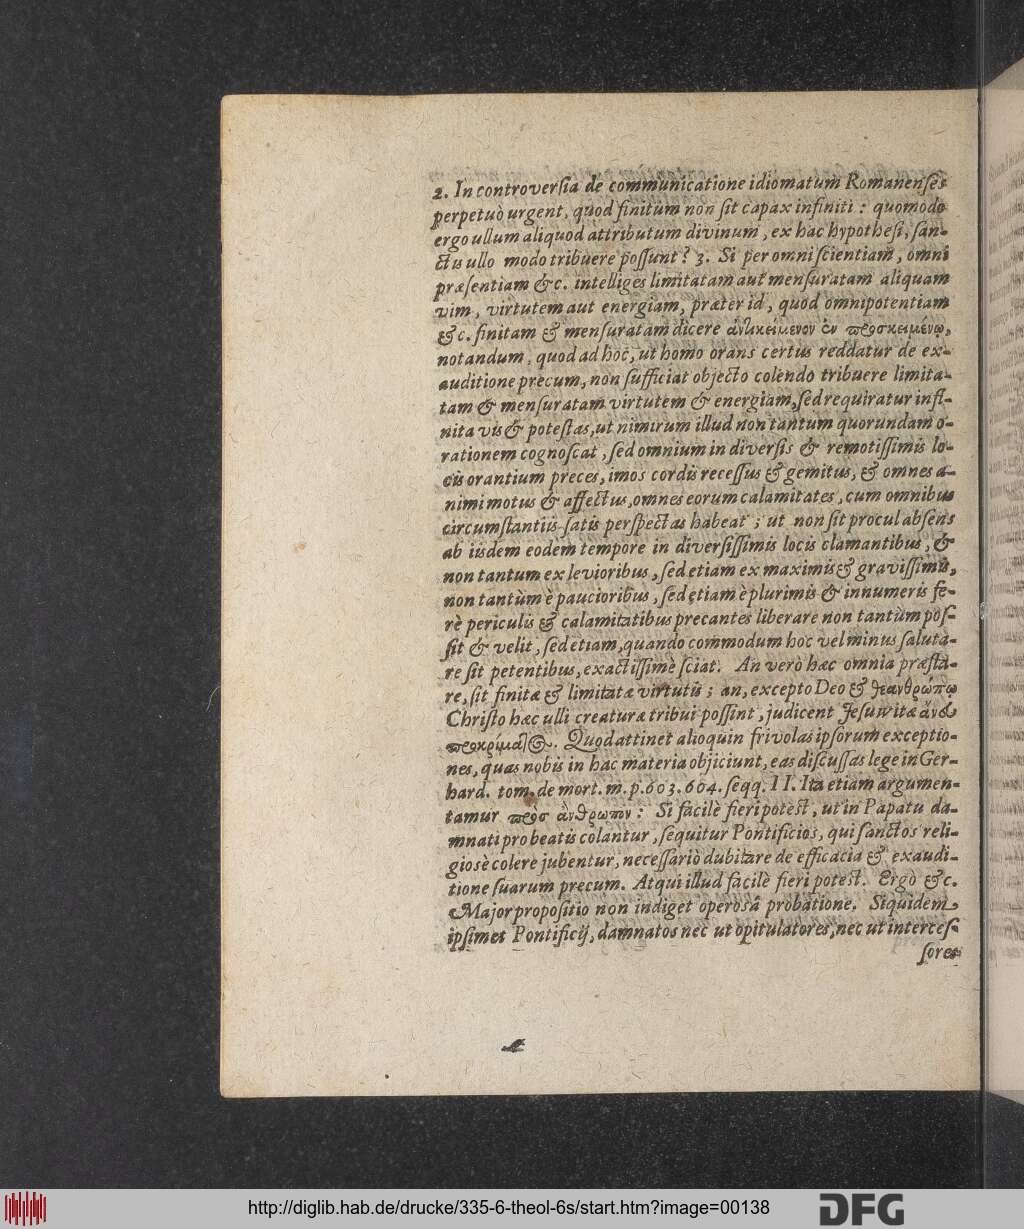 2. In controverſia de communicatione idiomatum Romanenſes
perpetuò urgent, quod finitum non ſit capax infiniti : quomodo
ergo ullum aliquod attributum divinum, ex hac hypotheſi, ſan-
ctis ullo modo tribuere poſſunt? 3. Si per omniſcientiam, omni
præſentiam &c. intelliges limitatam aut menſuratam aliquam
vim, virtutem aut energiam, præter id, quod omnipotentiam
&c. finitam & menſuratam dicere ἀντικείμενον ἐν προσκειμένῳ,
notandum, quod ad hoc, ut homo orans certus reddatur de ex-
auditione precum, non ſufficiat objecto colendo tribuere limita-
tam & menſuratam virtutem & energiam, ſed requiratur infi-
nita vis & poteſtas, ut nimirum illud non tantum quorundam o-
rationem cognoſcat, ſed omnium in diverſis & remotiſſimis lo-
cis orantium preces, imos cordis receſſus & gemitus, & omnes a-
nimi motus & affectus, omnes eorum calamitates, cum omnibus
circumſtantiis ſatis perſpectas habeat ; ut non ſit procul abſens
ab iisdem eodem tempore in diverſiſſimis locis clamantibus, &
non tantum ex levioribus, ſed etiam ex maximis & graviſſimis,
non tantùm è paucioribus, ſed etiam è plurimis & innumeris fe-
rè periculis & calamitatibus precantes liberare non tantùm poſ-
ſit & velit, ſed etiam, quando commodum hoc vel minus ſaluta-
re ſit petentibus, exactiſſimè ſciat. An verò hæc omnia præſta-
re, ſit finitæ & limitatæ virtutis ; an, excepto Deo & θεανθρώπῳ
Chriſto hæc ulli creaturæ tribui poſſint, judicent Jeſuwitæ ἄνευ
προκρίματος. Quod attinet alioquin frivolas ipſorum exceptio-
nes, quas nobis in hac materia objiciunt, eas diſcuſſas lege in Ger-
hard. tom. de mort. m. p. 603. 604. ſeqq. II. Ita etiam argumen-
tamur πρὸς ἄνθρωπον : Si facilè fieri poteſt, ut in Papatu da-
mnati pro beatis colantur, ſequitur Pontificios, qui ſanctos reli-
gioſè colere jubentur, neceſſariò dubitare de efficacia & exaudi-
tione ſuarum precum. Atqui illud facilè fieri poteſt. Ergò &c.
Major propoſitio non indiget operosâ probatione. Siquidem
ipſimet Pontificij, damnatos nec ut opitulatores, nec ut interceſ-
ſores
http://diglib.hab.de/drucke/335-6-theol-6s/start.htm?image=00138
DFG